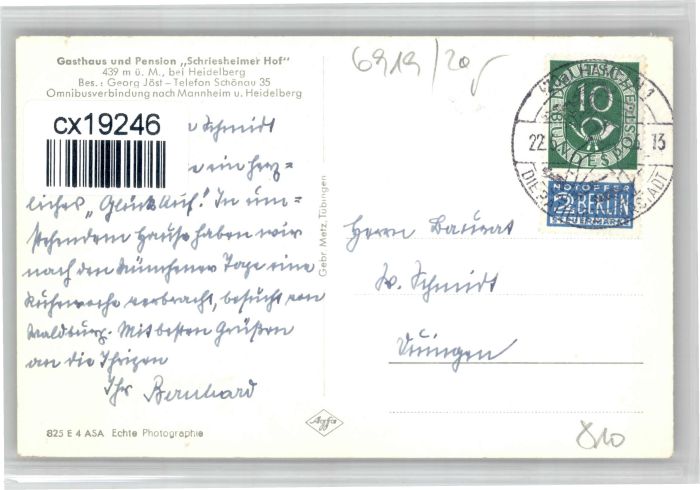 Gasthaus und Pension „Schriesheimer Hof"
439 m ü. M., bei Heidelberg
Bes.: Georg Jöst – Telefon Schönau 35
Omnibusverbindung nach Mannheim u. Heidelberg
6919/20
cx19246
Schmidt
ein herz=
liches „Glückauf!" In um=
stehendem Hause haben wir
nach den Münchener Tagen eine
Ruhewoche verbracht, besucht von
Waldburg. Mit besten Grüßen
an die Ihrigen
Ihr Bernhard
825 E 4 ASA Echte Photographie
Gebr. Metz, Tübingen
Agfa
10
DEUTSCHE BUNDESPOST
22
13
NOTOPFER
2 BERLIN
STEUERMARKE
Herrn Baurat
W. Schmidt
810